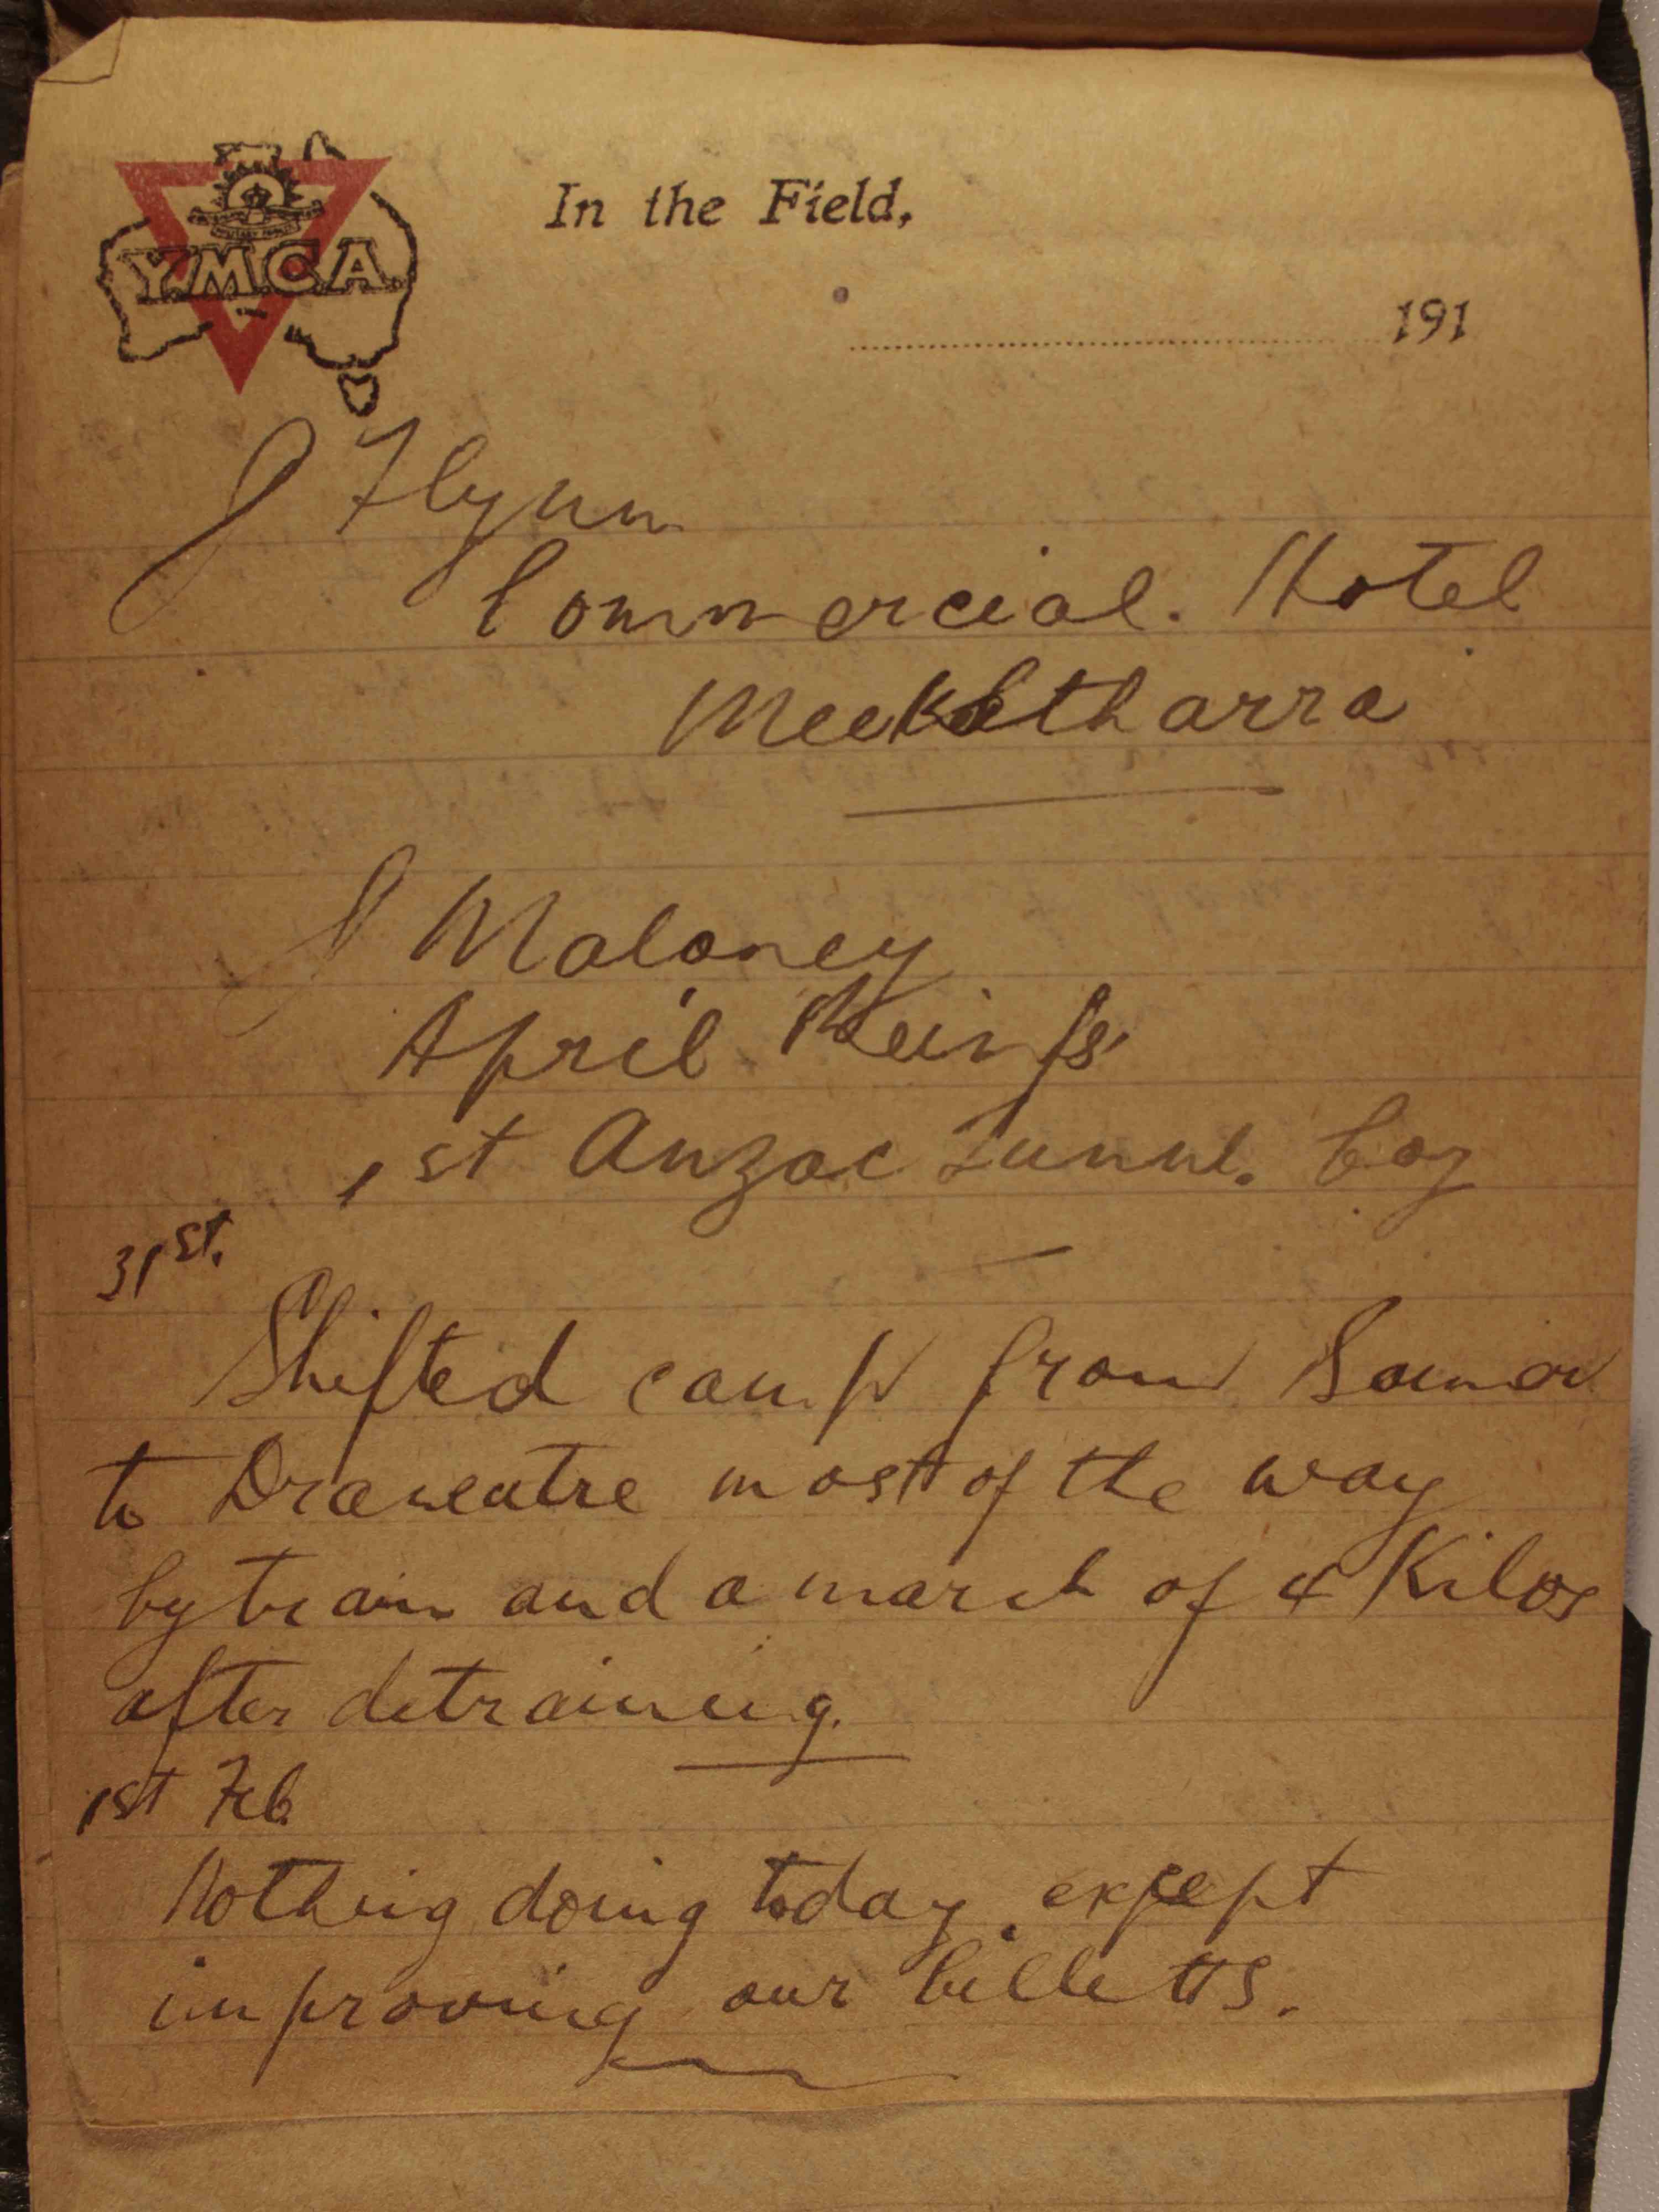 Y.M.C.A.
In the Field,
191
J Flynn
Commercial. Hotel
Meekatharra
J Maloney
April Reinfs
1st Anzac Tunnl. Coy
31st.
Shifted camp from Samer
to Dranoutre most of the way
by train and a march of 4 Kilos
after detraining.
1st Feb
Nothing doing today except
improving our billetts.